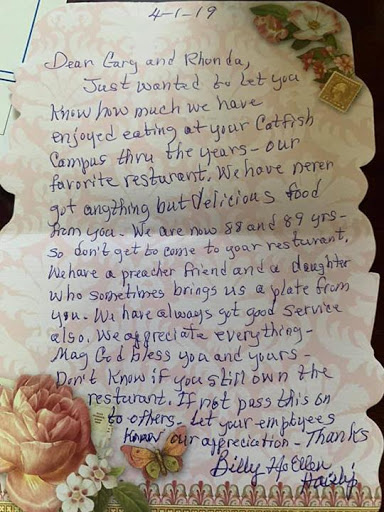 4-1-19
Dear Gary and Rhonda,
Just wanted to let you
know how much we have
enjoyed eating at your Catfish
Campus thru the years - our
favorite resturant. We have never
got angthing but delicious food
from you - We are now 88 and 89 yrs -
so don't get to come to your resturant.
We have a preacher friend and a daughter
who sometimes brings us a plate from
you. We have always got good service
also. We appreciate everything -
May God bless you and yours -
Don't know if you still own the
resturant. If not pass this on
to others - Let your employees
know our appreciation - Thanks
Billy